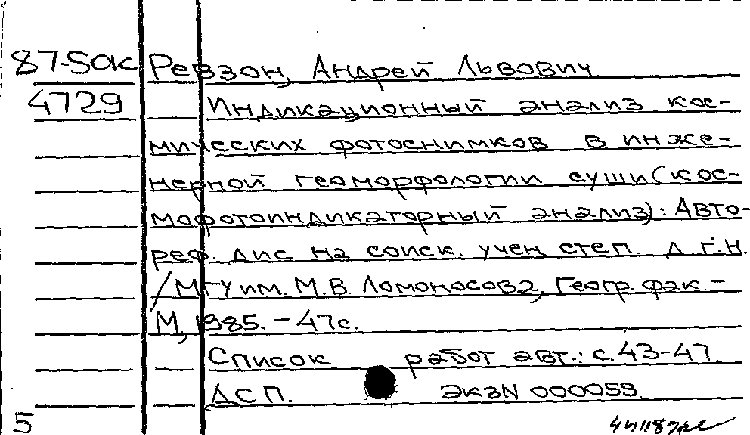 87-5ак Ревзон, Андрей Львович
4729 Индикационный анализ кос-
мических фотоснимков в инже-
нерной геоморфологии суши (кос-
мофотоиндикаторный анализ): Авто-
реф. дис на соиск. учен. степ. д.г.н.
/МГУ им. М.В. Ломоносова, Геогр. фак -
М, 1985. - 47с.
Список работ авт.: с. 43-47
ДСП. экз N 000059
5